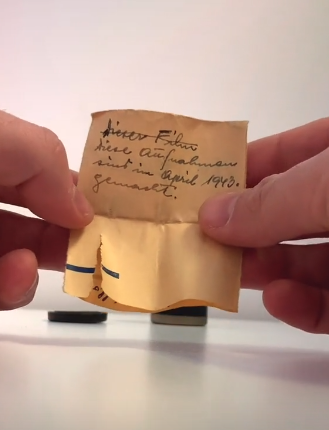 Dieser Film
Diese Aufnahmen
sind im April 1943.
gemacht.